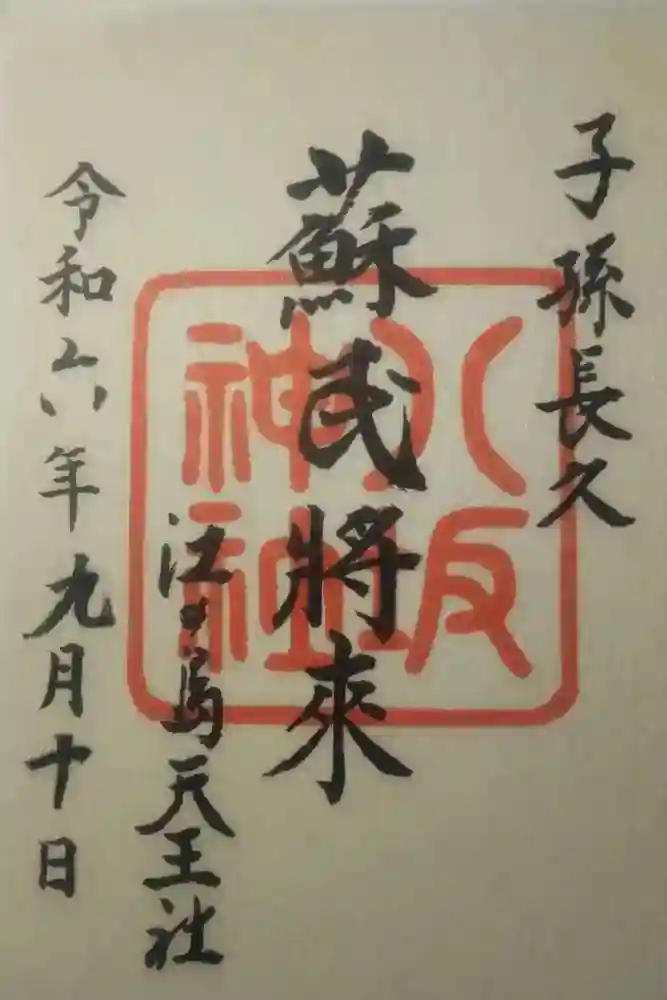 子孫長久
蘇民將來
江ノ島天王社
令和六年九月十日
八坂
神社